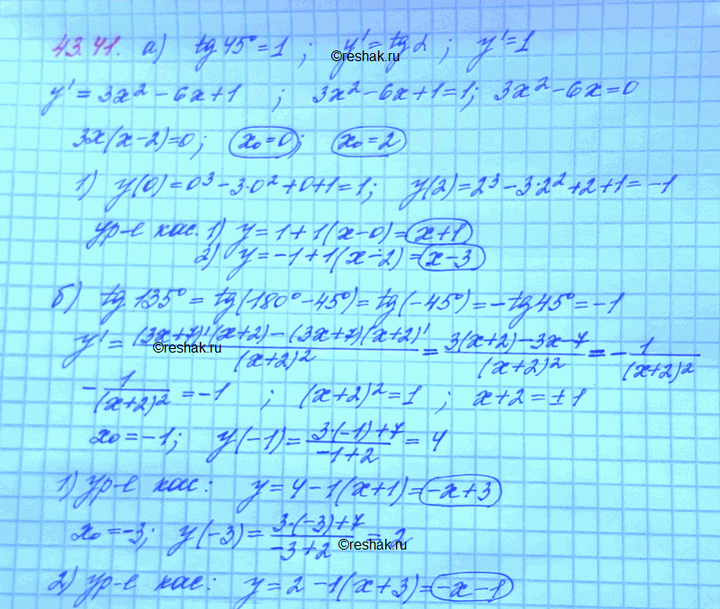 43.41. а) tg 45° = 1 ; y' = tg α ; y' = 1
©reshak.ru
y' = 3x² - 6x + 1 ; 3x² - 6x + 1 = 1; 3x² - 6x = 0
3x(x-2) = 0; x₀ = 0; x₀ = 2
1) y(0) = 0³ - 3·0² + 0 + 1 = 1; y(2) = 2³ - 3·2² + 2 + 1 = -1
ур-е кас. 1) y = 1 + 1(x-0) = x+1
2) y = -1 + 1(x-2) = x-3
б) tg 135° = tg(180° - 45°) = tg(-45°) = -tg 45° = -1
y' = ((3x+7)'(x+2) - (3x+7)(x+2)')/(x+2)² = (3(x+2) - 3x - 7)/(x+2)² = -1/(x+2)²
©reshak.ru
-1/(x+2)² = -1 ; (x+2)² = 1 ; x+2 = ±1
x₀ = -1; y(-1) = (3·(-1)+7)/(-1+2) = 4
1) ур-е кас: y = 4 - 1(x+1) = -x+3
x₀ = -3; y(-3) = (3·(-3)+7)/(-3+2) = 2
©reshak.ru
2) ур-е кас: y = 2 - 1(x+3) = -x-1